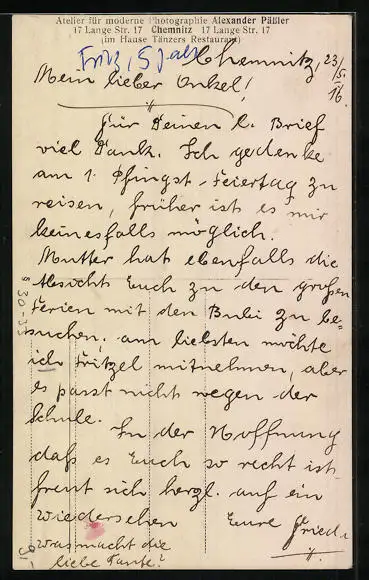 Atelier für moderne Photographie Alexander Päßler
17 Lange Str. 17 Chemnitz 17 Lange Str. 17
(im Hause Tänzers Restaurant)
Fritz, 5 Jahr
Chemnitz, 23/5. 16.
Mein lieber Onkel!
Für Deinen l. Brief
viel Dank. Ich gedenke
am 1. Pfingst-Feiertag zu
reisen, früher ist es mir
keinesfalls möglich.
Mutter hat ebenfalls die
Absicht Euch zu den großen
Ferien mit den Bubi zu be=
suchen. am liebsten möchte
ich Fritzel mitnehmen, aber
es passt nicht wegen der
Schule.
In der Hoffnung
daß es Euch so recht ist
freut sich herzl. auf ein
wiedersehen Eure Fried.
was macht die
liebe Tante?